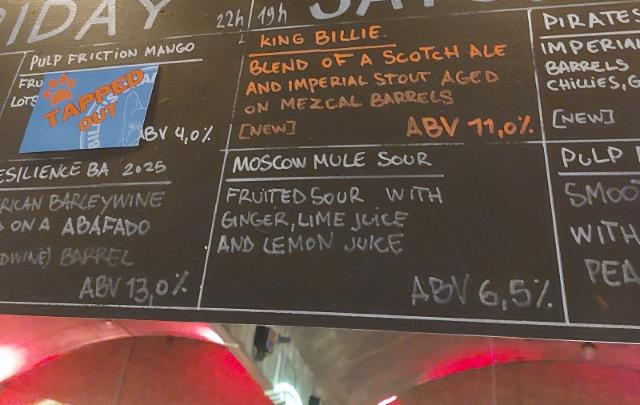 22h/19h
PULP FRICTION MANGO
FRU
LOTS
TAPPED
OUT
BV 4,0%
ESILIENCE BA 2025
RICAN BARLEYWINE
ON A ABAFADO
DWINE) BARREL
ABV 13,0%
KING BILLIE
BLEND OF A SCOTCH ALE
AND IMPERIAL STOUT AGED
ON MEZCAL BARRELS
[NEW] ABV 11,0%
MOSCOW MULE SOUR
FRUITED SOUR WITH
GINGER, LIME JUICE
AND LEMON JUICE
ABV 6,5%
PIRATES
IMPERIA
BARRELS
CHILLIES, G
[NEW]
PULP
SMOO
WITH
PEA